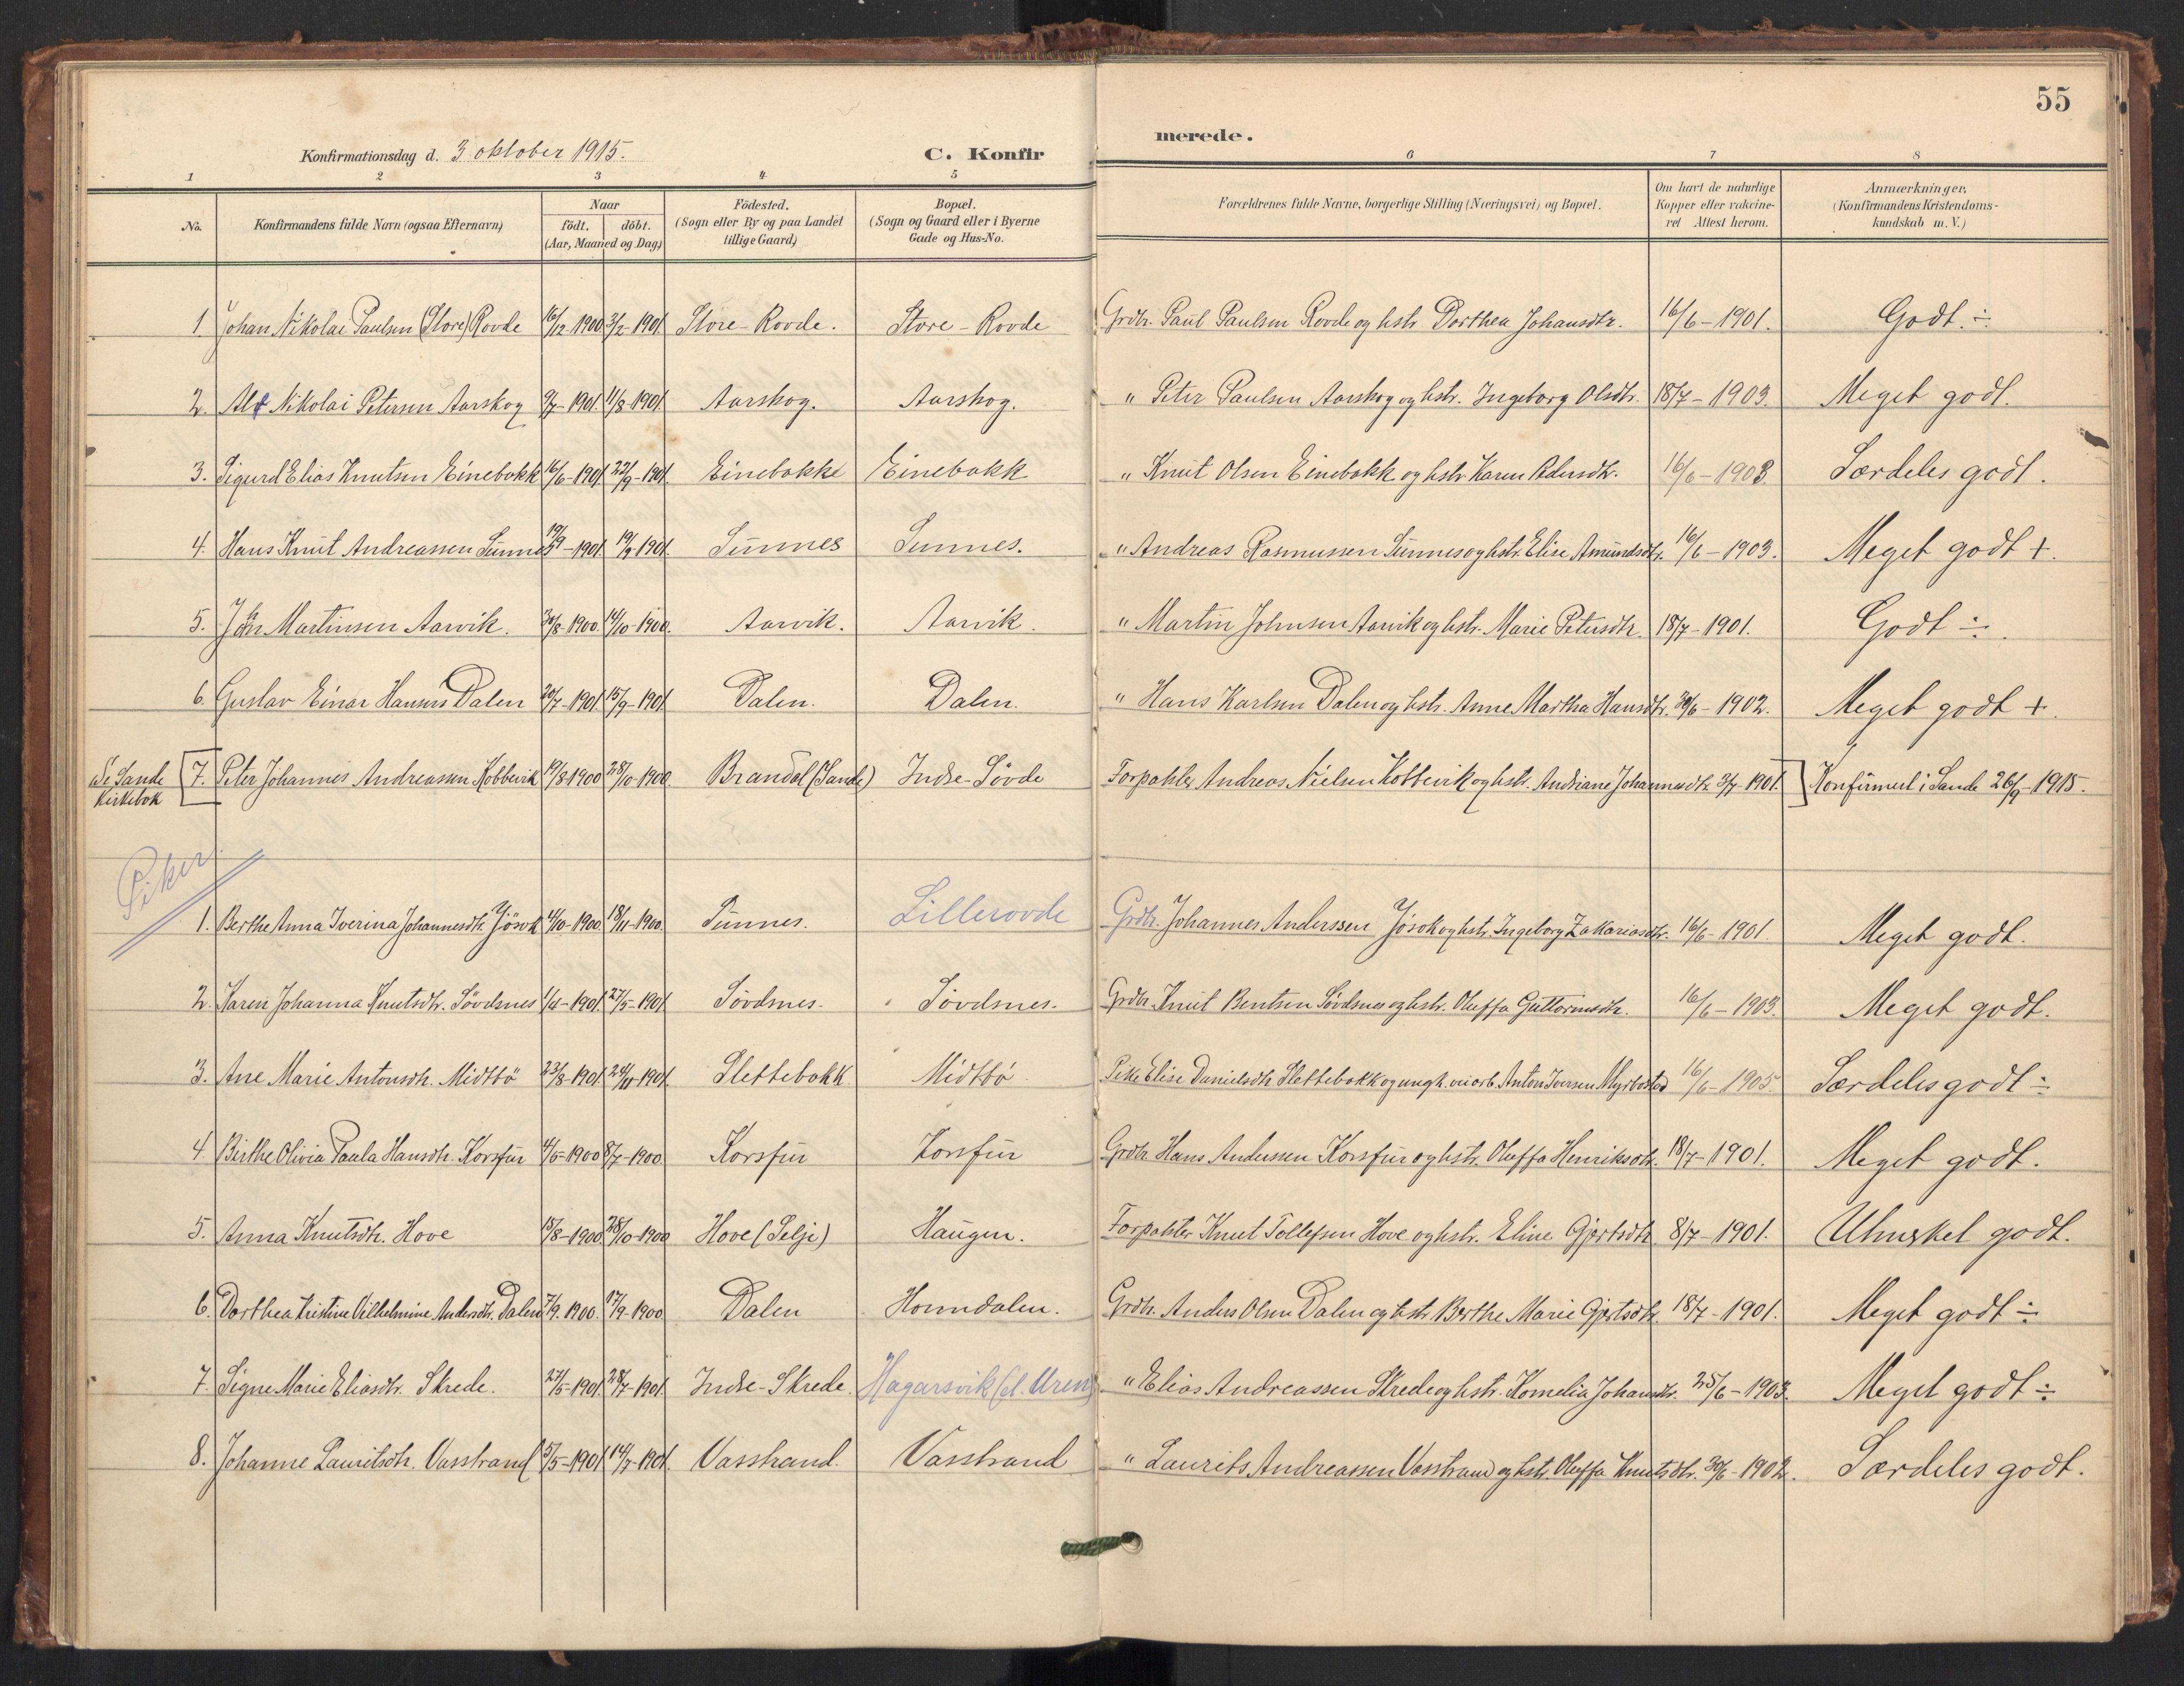 55
Konfirmationsdag d. 3 oktober 1915. C. Konfir merede.
1 2 3 4 5 6 7 8
No. Konfirmandens fulde Navn (ogsaa Efternavn) Naar födt. döbt. (Aar, Maaned og Dag) Födested. (Sogn eller By og paa Landet tillige Gaard) Bopæl. (Sogn og Gaard eller i Byerne Gade og Hus-No. Forældrenes fulde Navne, borgerlige Stilling (Næringsvei) og Bopæl. Om havt de naturlige Kopper eller vakcineret Attest herom. Anmærkninger. (Konfirmandens Kristendomskundskab m. V.)
1 Johan Nikolai Paulsen (Store) Rovde 16/12 1900 3/2-1901 Store-Rovde. Store-Rovde Grdbr. Paul Paulsen Rovde og hstr Dorthea Johansdtr. 16/6-1901. Godt. ÷
2. Alf Nikolai Petersen Aarskog 9/7-1901. 11/8-1901 Aarskog. Aarskog. " Peter Paulsen Aarskog og hstr. Ingeborg Olsdtr. 18/7-1903. Meget godt.
3. Sigurd Elias Knutsen Einebakk 16/6-1901 22/9-1901. Einebakke Einebakk " Knut Olsen Einebakk og hstr Karen Pedersdtr. 16/6-1903. Særdeles godt.
4. Hans Knut Andreassen Sunnes -1901 1901. Sunnes Sunnes. " Andreas Rasmussen Sunnes og hstr. Elise Amundsdtr. 16/6-1903. Meget godt +.
5. John Martinsen Aarvik. 30/8-1900. 14/10-1900. Aarvik. Aarvik. " Martin Johnsen Aarvik og hstr. Marie Petersdtr. 18/7-1901. Godt ÷.
6. Gustav Einar Hansen Dalen 20/7-1901 15/9-1901 Dalen. Dalen. " Hans Karlsen Dalen og hstr. Anne Martha Hansdtr. 30/6-1902. Meget godt +.
Se Sande Kirkebok [7. Peter Johannes Andreassen Kobbevik 19/8-1900 28/10-1900. Brandal (Sande) Indre-Sövde Forpakter Andreas Nielsen Kobbevik og hstr. Andriane Johannesdtr 3/7-1901.] Konfirmert i Sande 26/9-1915.
Piker
1. Berthe Anna Iverina Johannesdtr. Jösok 4/10-1900. 18/11-1900. Sunnes. Lillerovde Grdbr. Johannes Anderssen Jösok og hstr. Ingeborg Zakariasdtr. 16/6-1901. Meget godt.
2. Karen Johanna Knutsdtr. Sövdsnes 1/4-1901. 27/5-1901. Sövdsnes. Sövdsnes. Grdbr. Knut Bentsen Sövdsnes og hstr. Oluffa Guttormsdtr. 16/6-1903. Meget godt.
3. Ane Marie Antonsdtr. Midtbö 23/8-1901. 24/11-1901. Slettebakk Midtbö Pike Elise Danielsdtr Slettebakk og ungk. veiarb. Anton Iversen Myrbostad 16/6-1905. Særdeles godt ÷
4. Birthe Olivia Paula Hansdtr. Korsfur 4/5-1900 8/7-1900. Korsfur Korsfur Grdbr Hans Anderssen Korsfur og hstr. Oluffa Henriksdtr. 18/7-1901. Meget godt.
5. Anna Knutsdtr. Hove 18/8-1900. 28/10-1900 Hove (Selje) Haugen. Forpakter Knut Tollefsen Hove og hstr. Eline Gjertsdtr 8/7-1901. Utmerket godt.
6. Dorthea Kristine Vilhelmine Andersdtr. Dalen 7/9. 1900. 17/9-1900. Dalen Homndalen. Grdbr. Anders Olsen Dalen og hstr. Berthe Marie Gjertsdtr. 18/7-1901. Meget godt ÷
7. Signe Marie Eliasdtr. Skrede. 27/5-1901. 28/7-1901. Indre-Skrede. Hagarsvik (el. Uren) " Elias Andreassen Skrede og hstr. Kornelia Johansdtr. 25/6-1903. Meget godt ÷
8. Johanne Lauritsdtr. Vasstrand 5/5-1901 14/7-1901. Vasstrand. Vasstrand " Laurits Andreassen Vasstrand og hstr. Oluffa Knutsdtr. 30/6-1902. Særdeles godt.